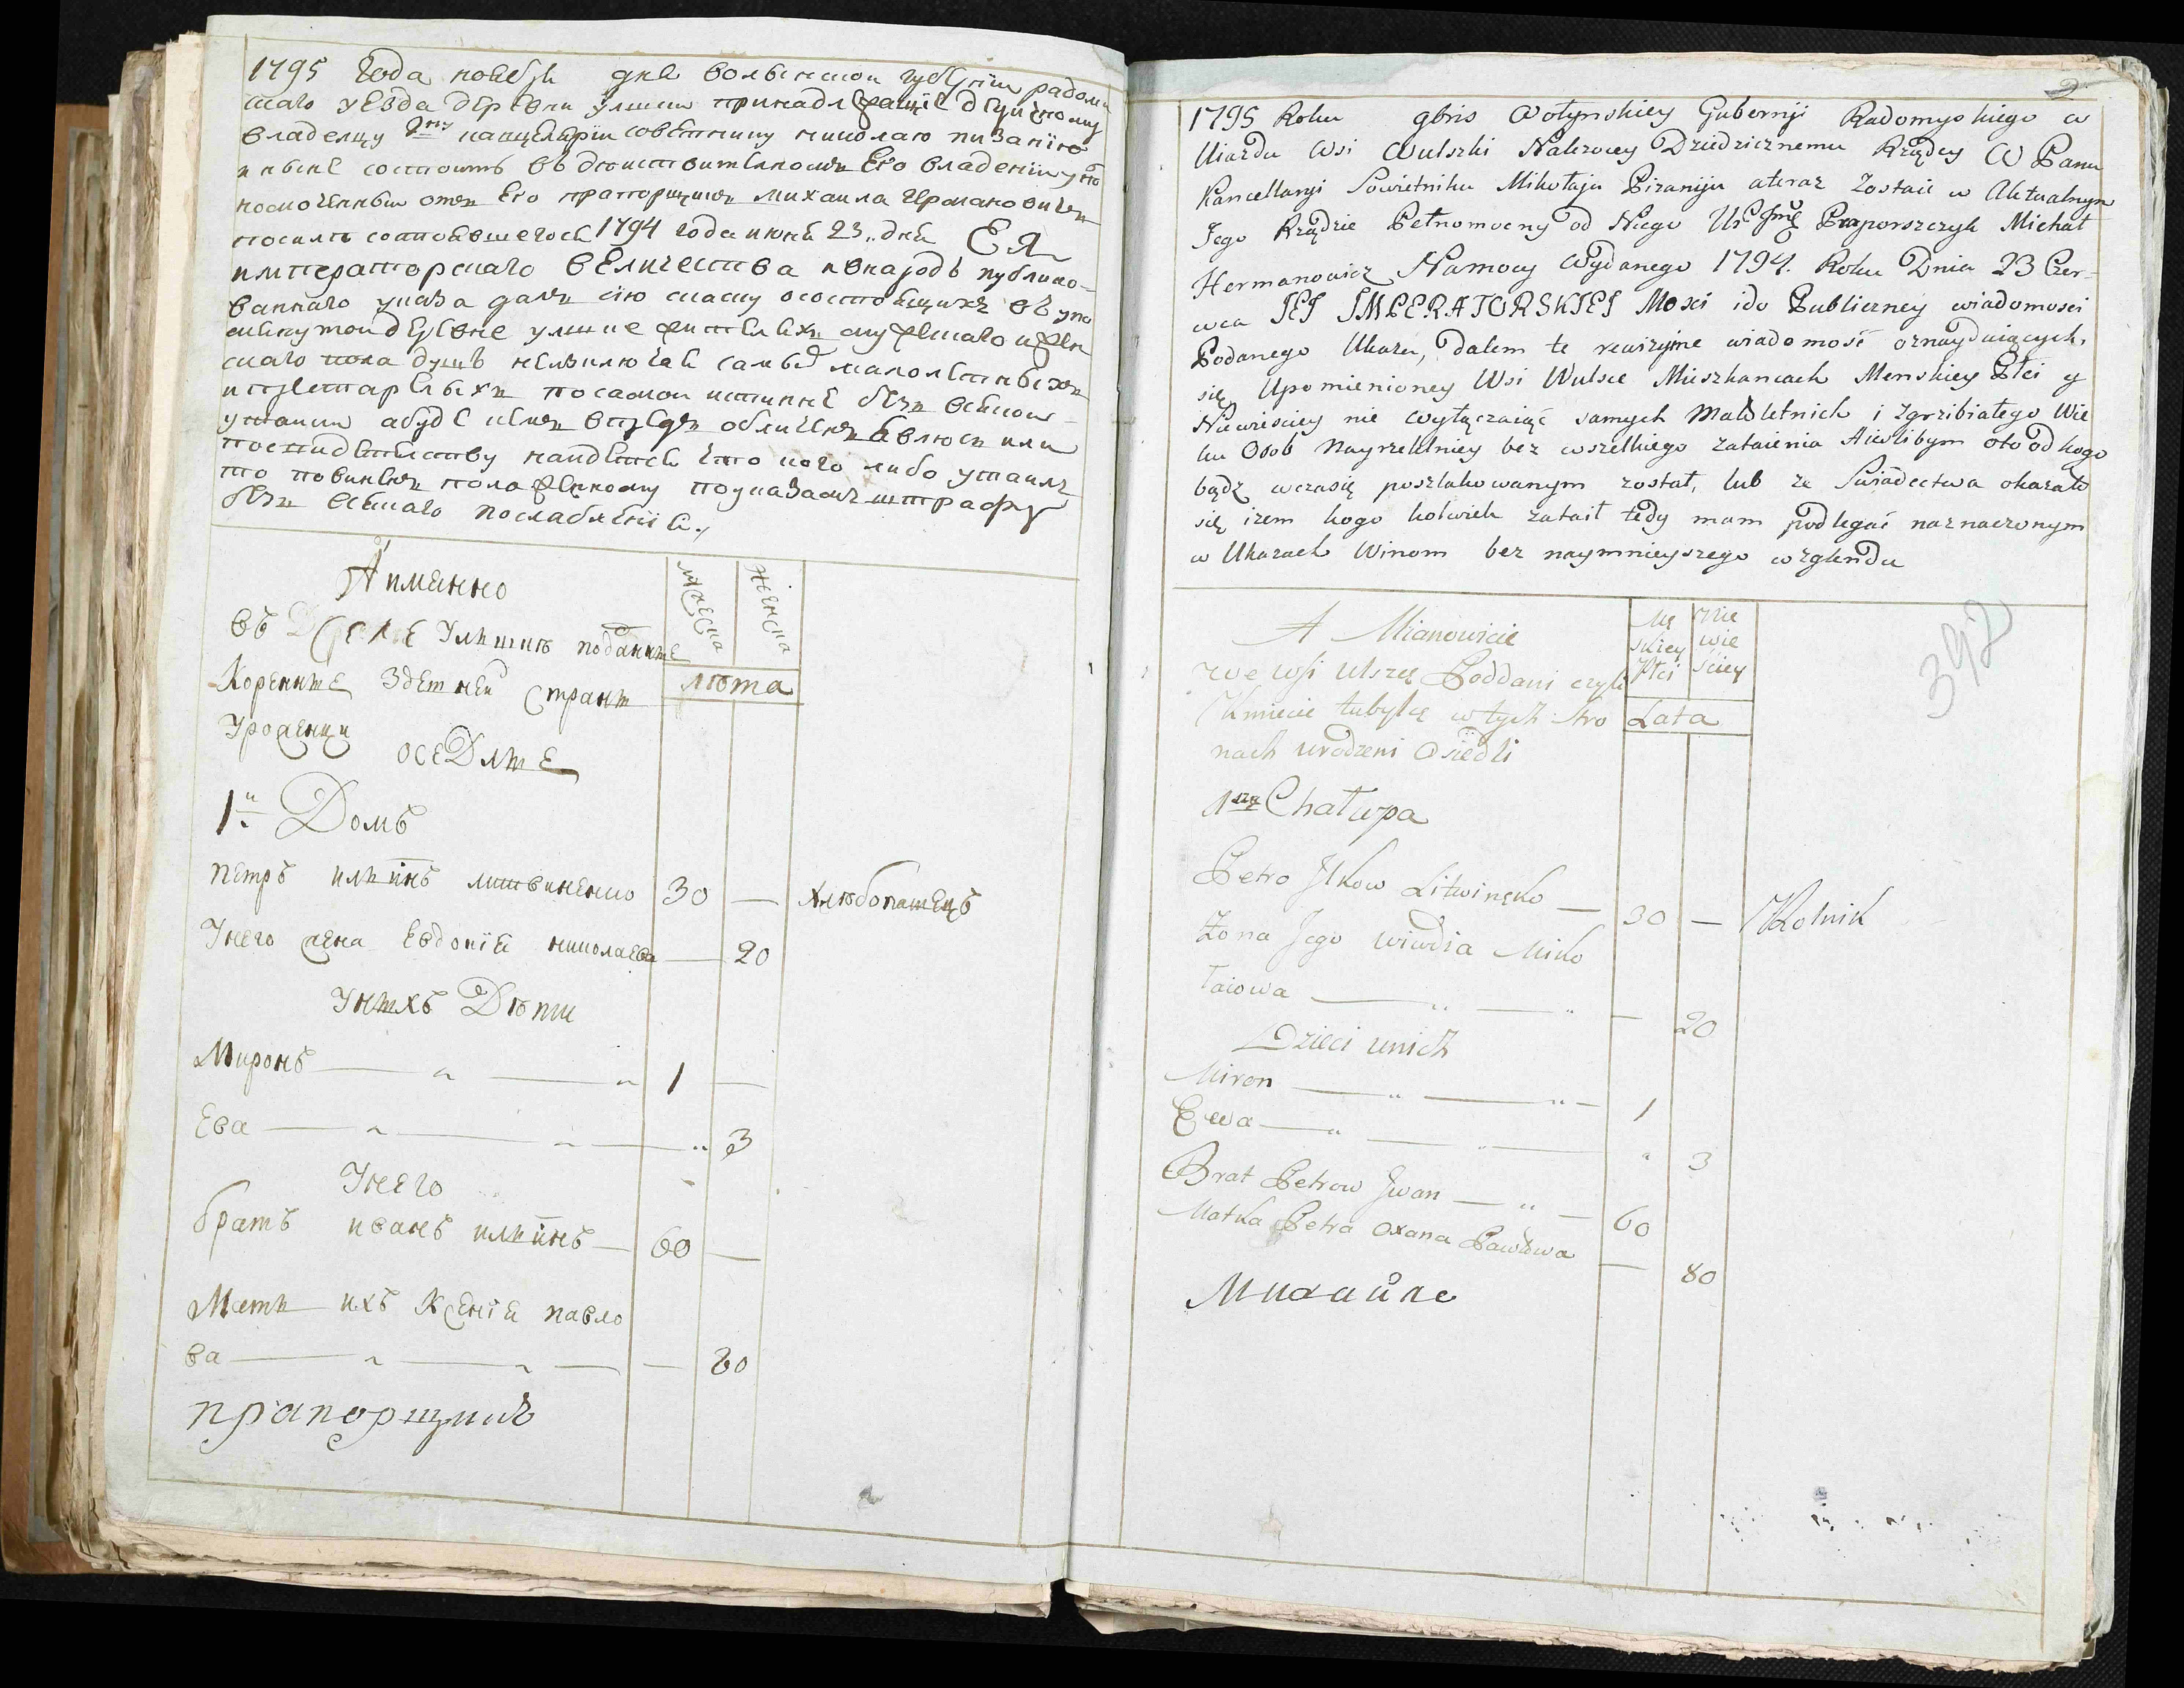 1795 Года ноебря дне волынской губернiи радомы
скаго уезда деревни улшки принадлежащiе дедичному
владелцу канцелярiи советнику николаю пизанiю
и ныне состоитъ въ действителномъ Его владенiи упо
номоченный отъ Его прапорщикъ михаила Германовичъ
посилъ состоявшегося 1794 года июня 23 дня ЕЯ
императорскаго величества и внародъ публико-
ваннаго указа далъ сiю скаску осостоящихъ въ упо
мянутой деревне улшке жителяхъ мужескаго и жен
скаго пола душъ не выключая самыхъ малолетныхъ
и престарелыхъ по самой истинне безъ всякой
утайки а буде кемъ впредь обличенъ явлюсь или
по свидетелству найдется что кого либо утаилъ
то повиненъ положенному по указамъ штрафу
безъ всякаго послабленiя
Аименно
мужеска
женска
въ Деревне Улшкъ поданые
Коренные Здешней стран
лѣта
Уроженци
осеДлые
1й Домъ
петръ илькинъ литвиненко 30 — хлѣбопашецъ
Унего жена Евдокiя николаева — 20
Унихъ Дѣти
Миронъ — " — " 1 —
Ева — " — " — " 3
Унего
братъ иванъ илькинъ — 60 —
Мать ихъ Ксенiя павло
ва — " — " — — 80
прапорщикъ
2
1795 Roku gbris Wołynskiey Gubernji Radomyskiego w
Uiazdu Wsi Wulszki Należącey Dziedzicznemu Rządcy W Panu
Kancellaryi Sowietniku Mikołaju Pizaniju a teraz Zostaie w Aktualnym
Jego Rządzie Pełnomocny od Niego Praporszczyk Michał
Hermanowicz Namocy Wydanego 1794. Roku Dnia 23 Czer-
wca JEJ IMPERATORSKIEJ Mosci ido Publiczney wiadomosci
Podanego Ukazu, dałem te rewizyine wiadomość oznayduiących
się Upomienioney Wsi Wulsce Mieszkancach Menskiey Płci y
Niewieściey nie wyłączaiąć samych Małoletnich i Zgrzibiałego Wie
ku Osob Nayrzetelniey bez wszelkiego zataienia Aieżlibym oto od kogo
bądz wczasię poszlakowanym został, lub ze Swiadectwa okazało
się izem kogo kolwiek zataił tedy mam podlegać naznaczonym
w Ukazach Winom bez naymnieyszego wzglendu
A Mianowicie
Mę skiey Płci
Nie wie sciey
392
we wsi ulszcę Poddani czyli
Kmiecie tubylcę w tych stro
Lata
nach urodzeni Osiedli
1sza Chałupa
Petro Jlkow Litwinęko — 30 — Rolnik
Żona Jego wiwdia Miko
łaiowa — " — " — 20
Dzieci unich
Miron — " — " — 1
Ewa — " — " — " 3
Brat Petrow Jwan — " — 60
Matka Petra oxana Pawłowa — 80
Михайло